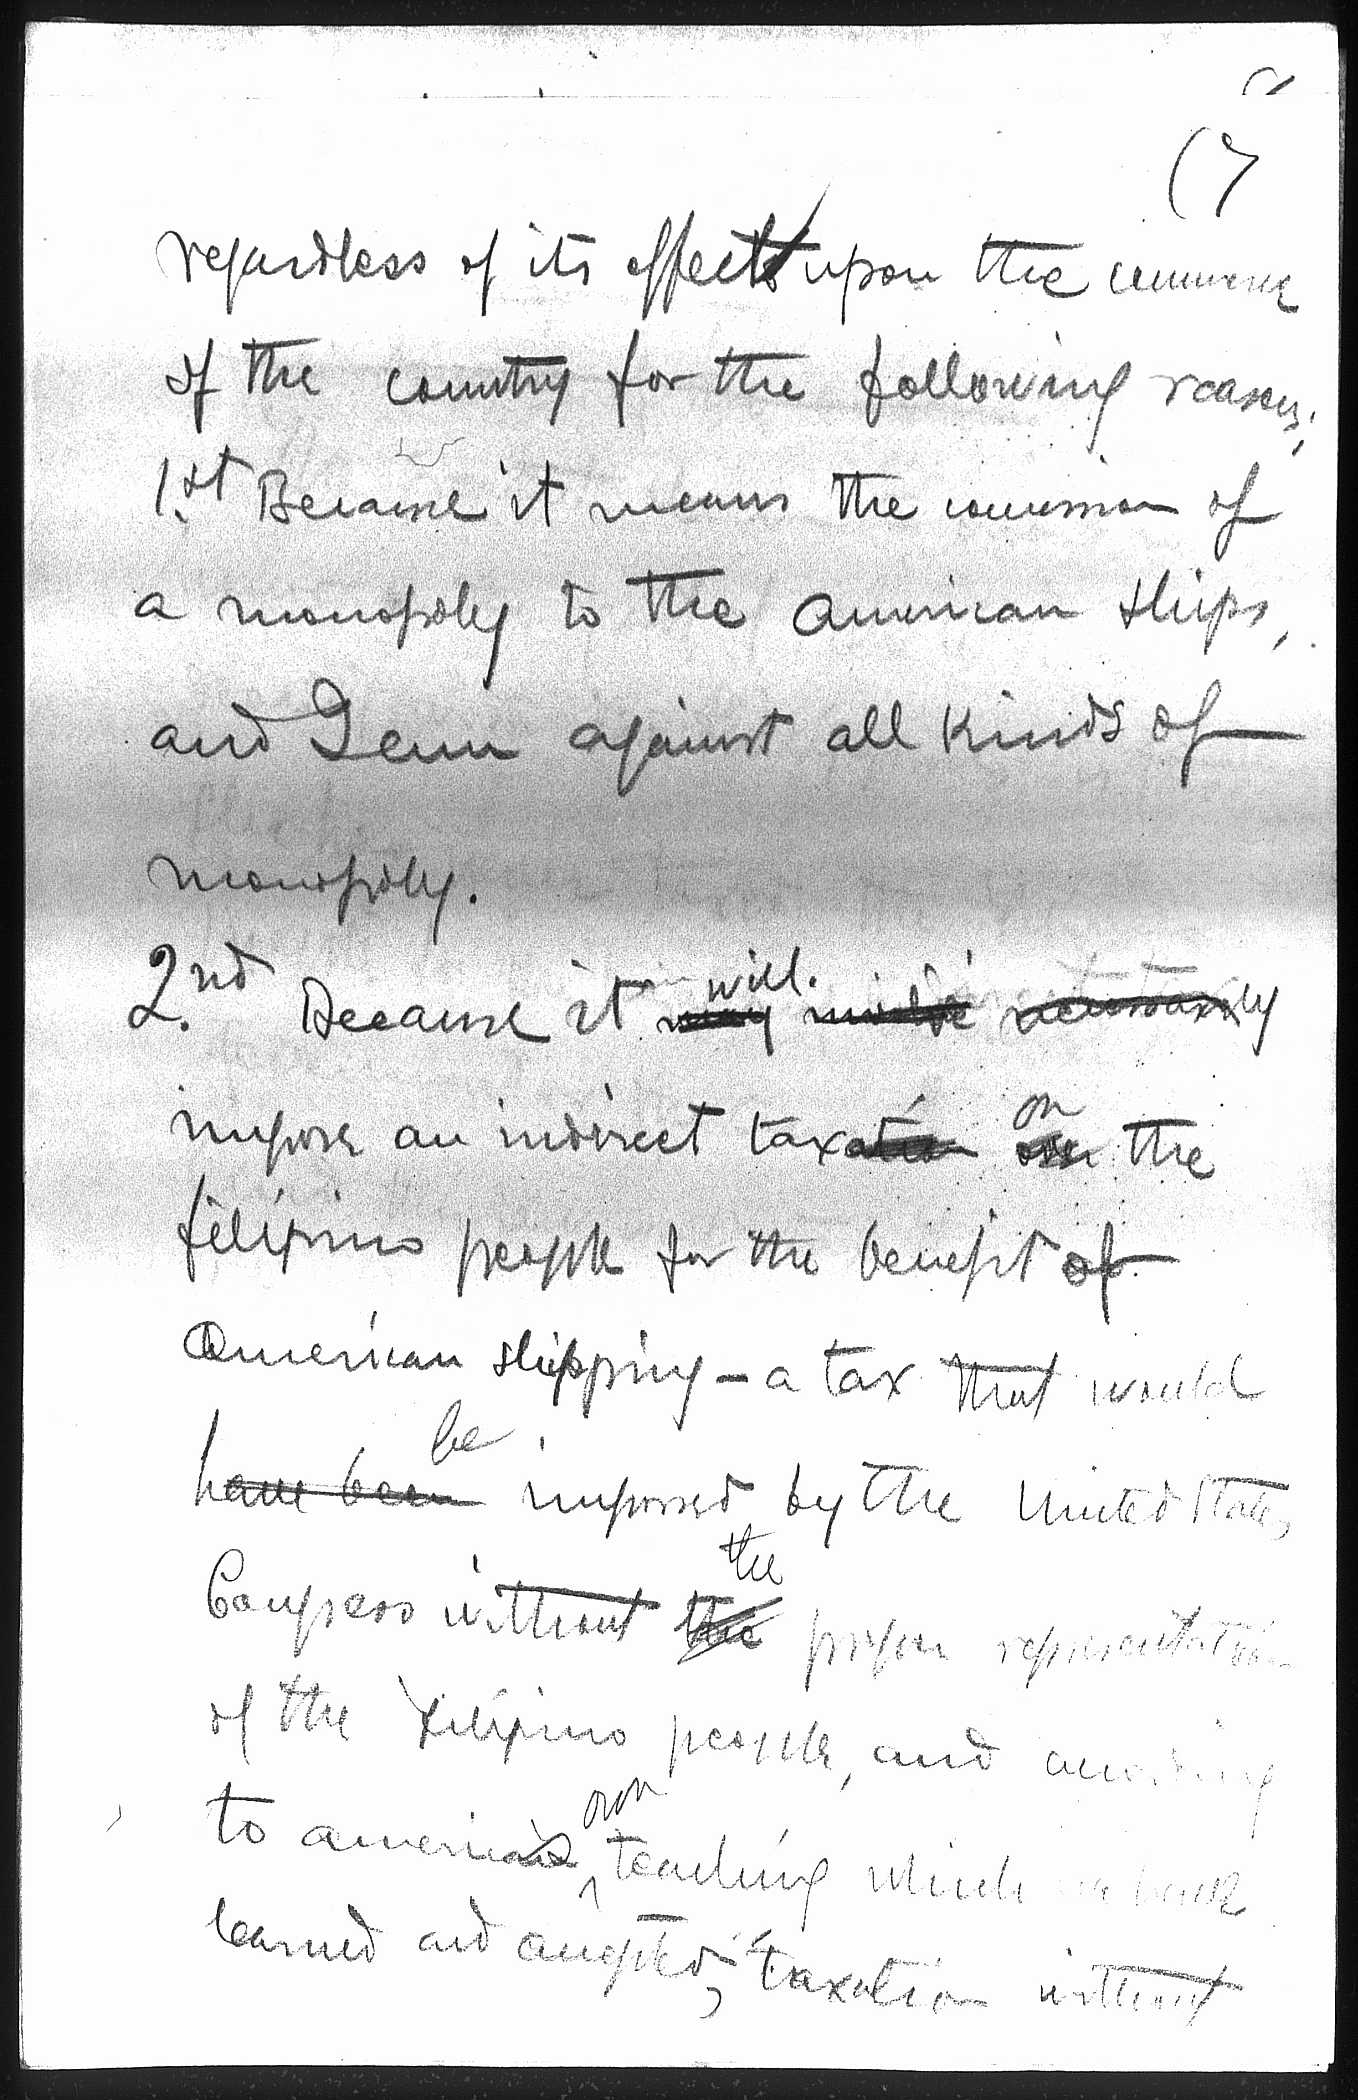 (7
regardless of its effect upon the commerce
of the country for the following reasons;
1.st Because it means the concession of
a monopoly to the American ships,
and I am against all kinds of
monopoly.
2.nd Because it will
impose an indirect tax on the
filipino people for the benefit of
American shipping - a tax that would
be imposed by the United States
Congress without the proper representation
of the filipino people, and according
to america's own teaching which we have
learned and accepted, "taxation without